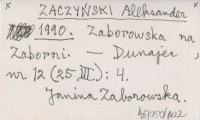 ZACZYŃSKI Aleksander
1990. Zaborowska na
Zaborni. — Dunajec,
nr 12 (25 III): 4.
Janina Zaborowska.